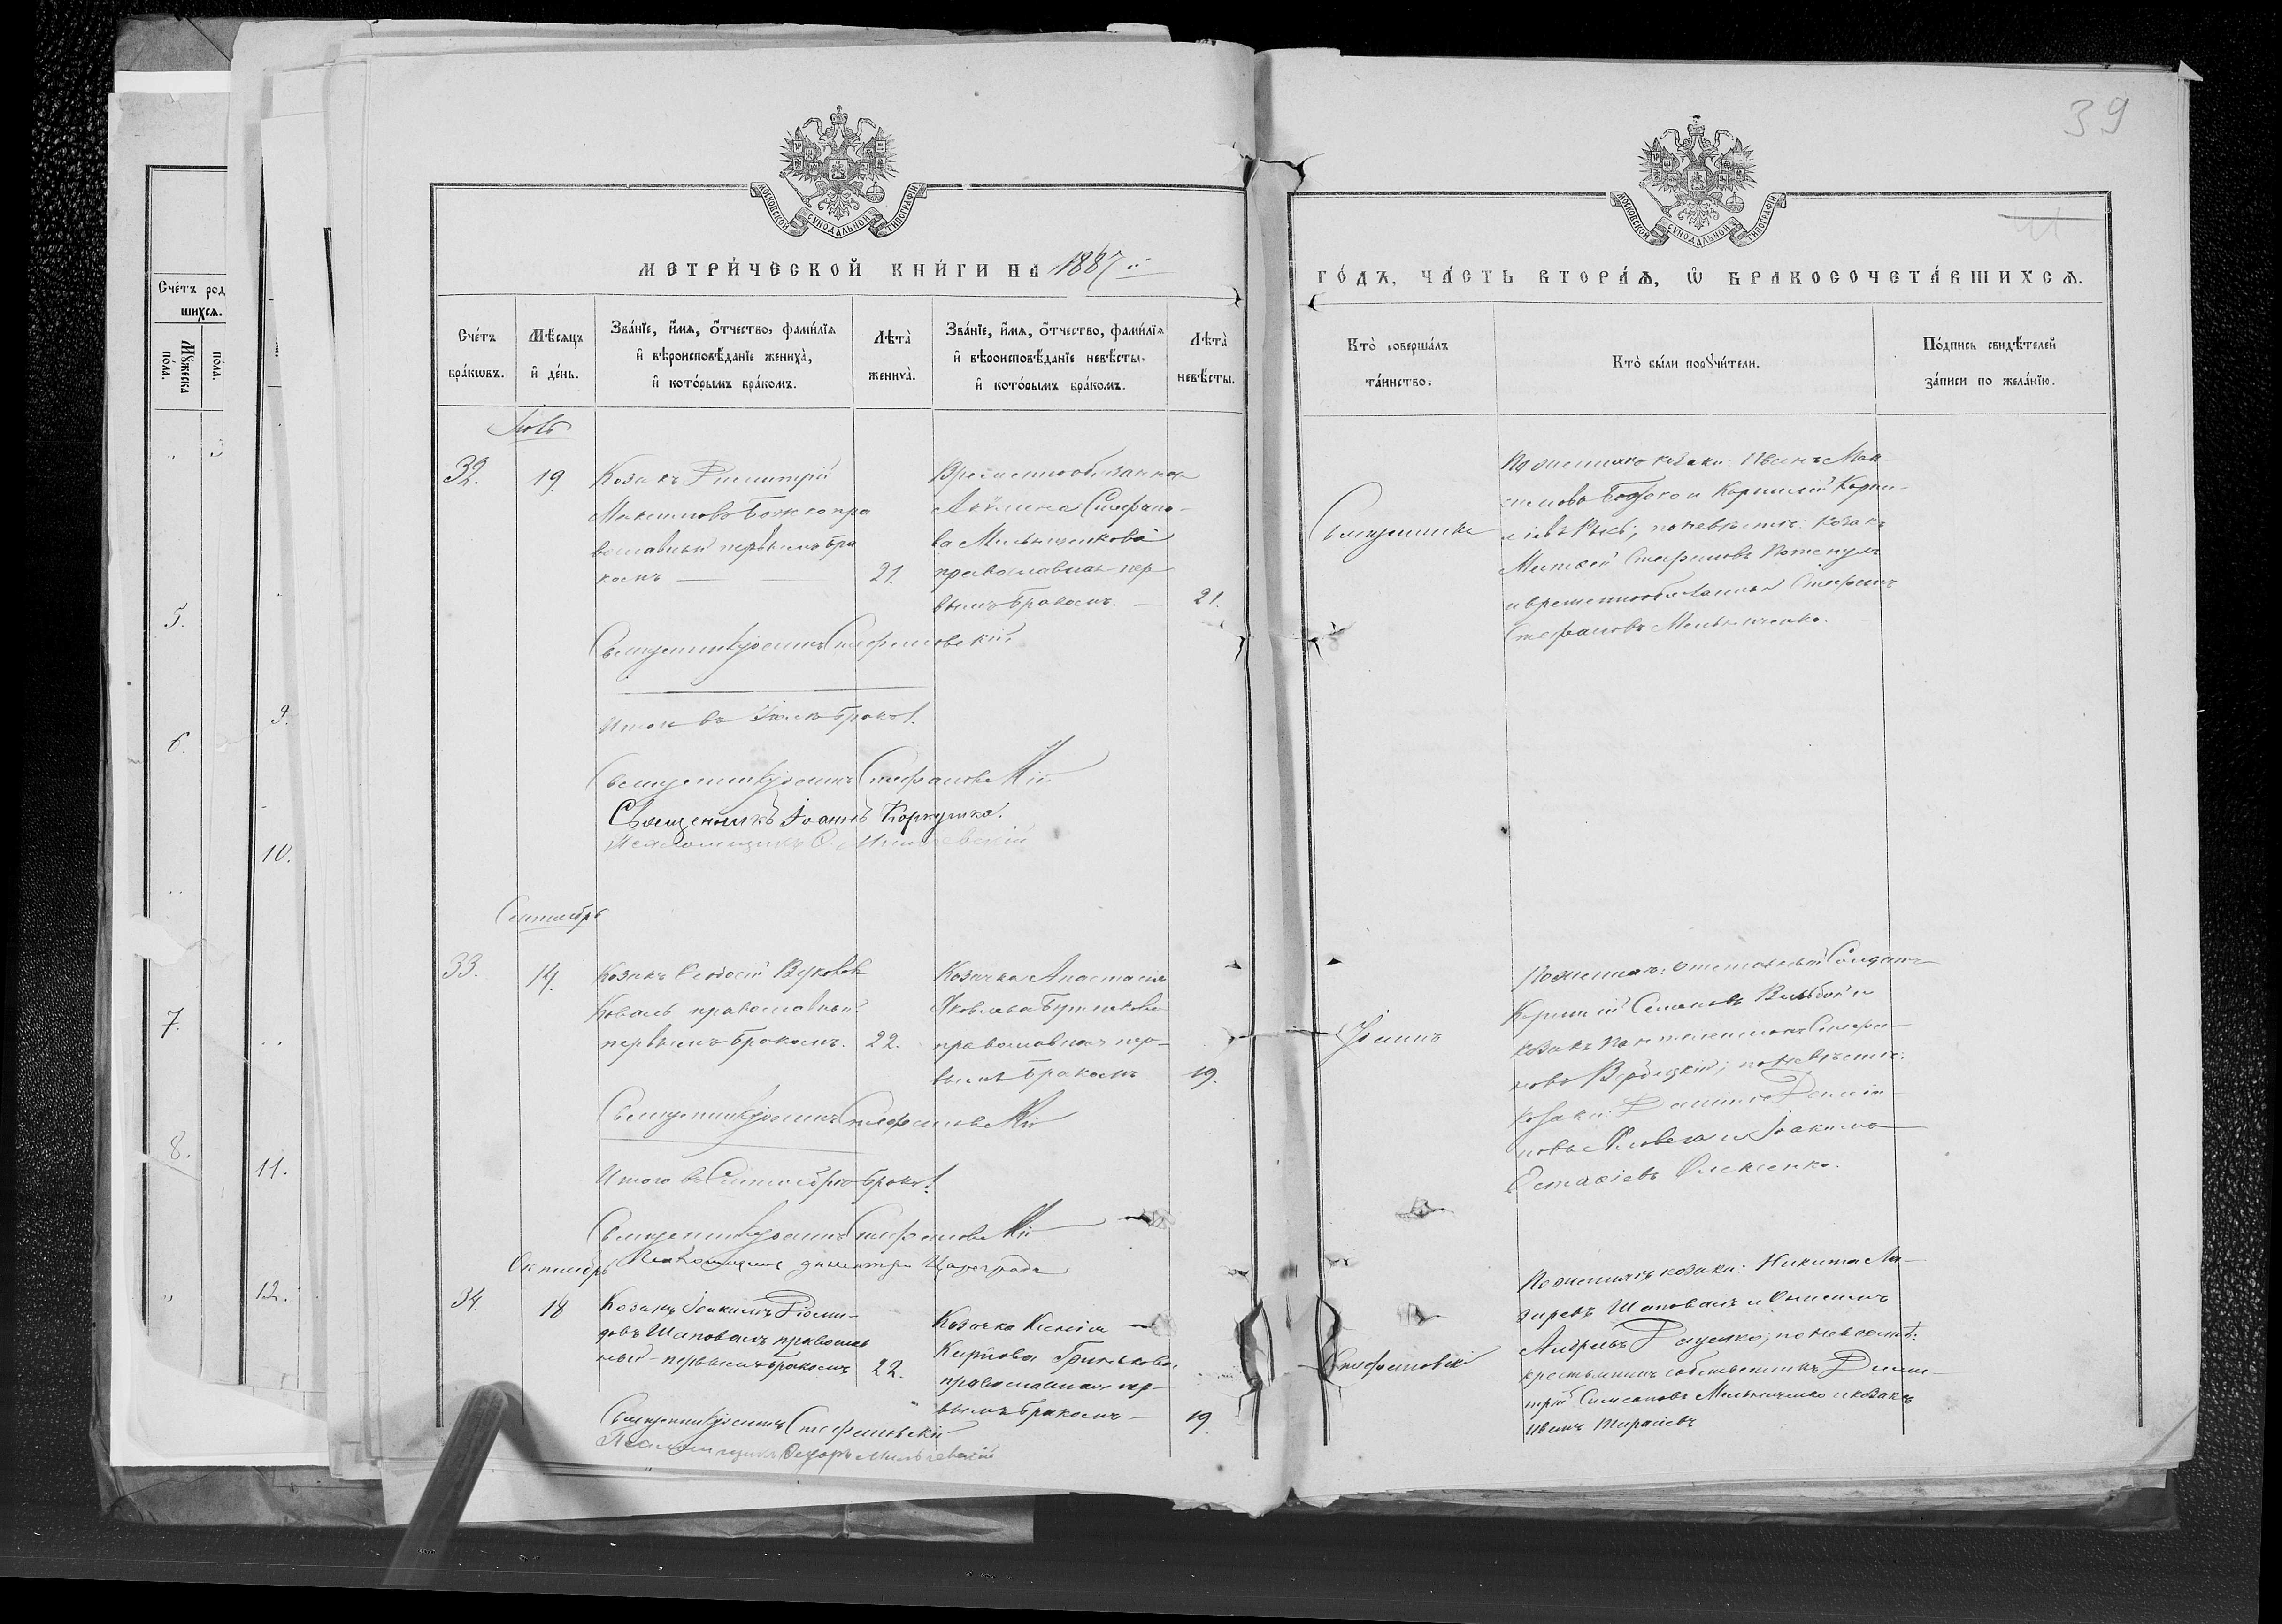 39
МОСКОВСКОЙ СѴНОДАЛЬНОЙ ТИПОГРАФІИ
МОСКОВСКОЙ СѴНОДАЛЬНОЙ ТИПОГРАФІИ
МЕТРИ́ЧЕСКОЙ КНИ́ГИ НА 1887
ГО́ДЪ, ЧА́СТЬ ВТОРА́Я, Ѿ БРАКОСОЧЕТА́ВШИХСѦ.
Сче́тъ род
шихсѧ.
Мꙋжеска по́ла.
по́ла.
5.
6.
7.
8.
9.
10.
11.
12.
Сче́тъ бра́кѡвъ.
Мѣ́сѧцъ и҆ де́нь.
Зва́нїе, и҆́мѧ, ѻ҆́тчество, фами́лїѧ
и҆ вѣроисповѣ́данїе жениха̀,
и҆ кото́рымъ бра́комъ.
Лѣта̀ жениха̀.
Зва́нїе, и҆́мѧ, ѻ҆́тчество, фами́лїѧ
и҆ вѣроисповѣ́данїе невѣ́сты,
и҆ кото́рымъ бра́комъ.
Лѣта̀ невѣ́сты.
Кто̀ соверша́лъ та́инство.
Кто̀ бы́ли порꙋчи́тели.
По́дпись свидѣ́телей
за́писи по жела́нїю.
32.
19.
Козакъ Димитрій
Максимовъ Божко пра
вославный первымъ бра
комъ
21.
Временнообязанная
Акилина Стефано-
ва Мельниченкова
православная пер
вымъ бракомъ.
21.
Священникъ
По женихѣ козаки: Иванъ Мак-
симовъ Божко и Корнилій Корни-
ліевъ; по невѣстѣ: козакъ
Стефановъ
и временнообязанный Стефанъ
Стефановъ Мельниченко.
Священникъ Іоаннъ Стефановскій
Итого въ браковъ 1.
Священникъ Іоаннъ Стефановскій
Священникъ Іоаннъ Коркушко.
Псаломщикъ Ѳ. Мильчевскій
Сентябрь
33.
14.
Козакъ Ѳеодосій
Коваль православный
первымъ бракомъ.
22.
Козачка Анастасія
Яковлева
православная пер-
вымъ бракомъ
19.
Іоаннъ
По женихѣ: отставный Солдатъ
Корнилій Семеновъ
козакъ Пантелеимонъ Стефа-
новъ; по невѣстѣ:
козаки: Даніилъ
и Іоакимъ
Евстафіевъ Олексенко.
Священникъ Іоаннъ Стефановскій
Итого въ Сентябрѣ браковъ 1.
Священникъ Іоаннъ Стефановскій
Псаломщикъ Димитрій Цареградскій
Октябрь
34.
18
Козакъ Іоакимъ Діоми-
довъ Шаповалъ православ
ный первымъ бракомъ
22.
Козачка Ксенія
Кирпова Гринькова
православная пер-
вымъ бракомъ
19.
Стефановскій
По женихѣ козаки: Никита Ла-
заревъ Шаповалъ и
Андреевъ; по невѣстѣ:
крестьянинъ собственникъ Дими-
трій Симеоновъ Мельниченко и козакъ
Иванъ Тарасіевъ
Священникъ Іоаннъ Стефановскій
Псаломщикъ Ѳедоръ Мильчевскій